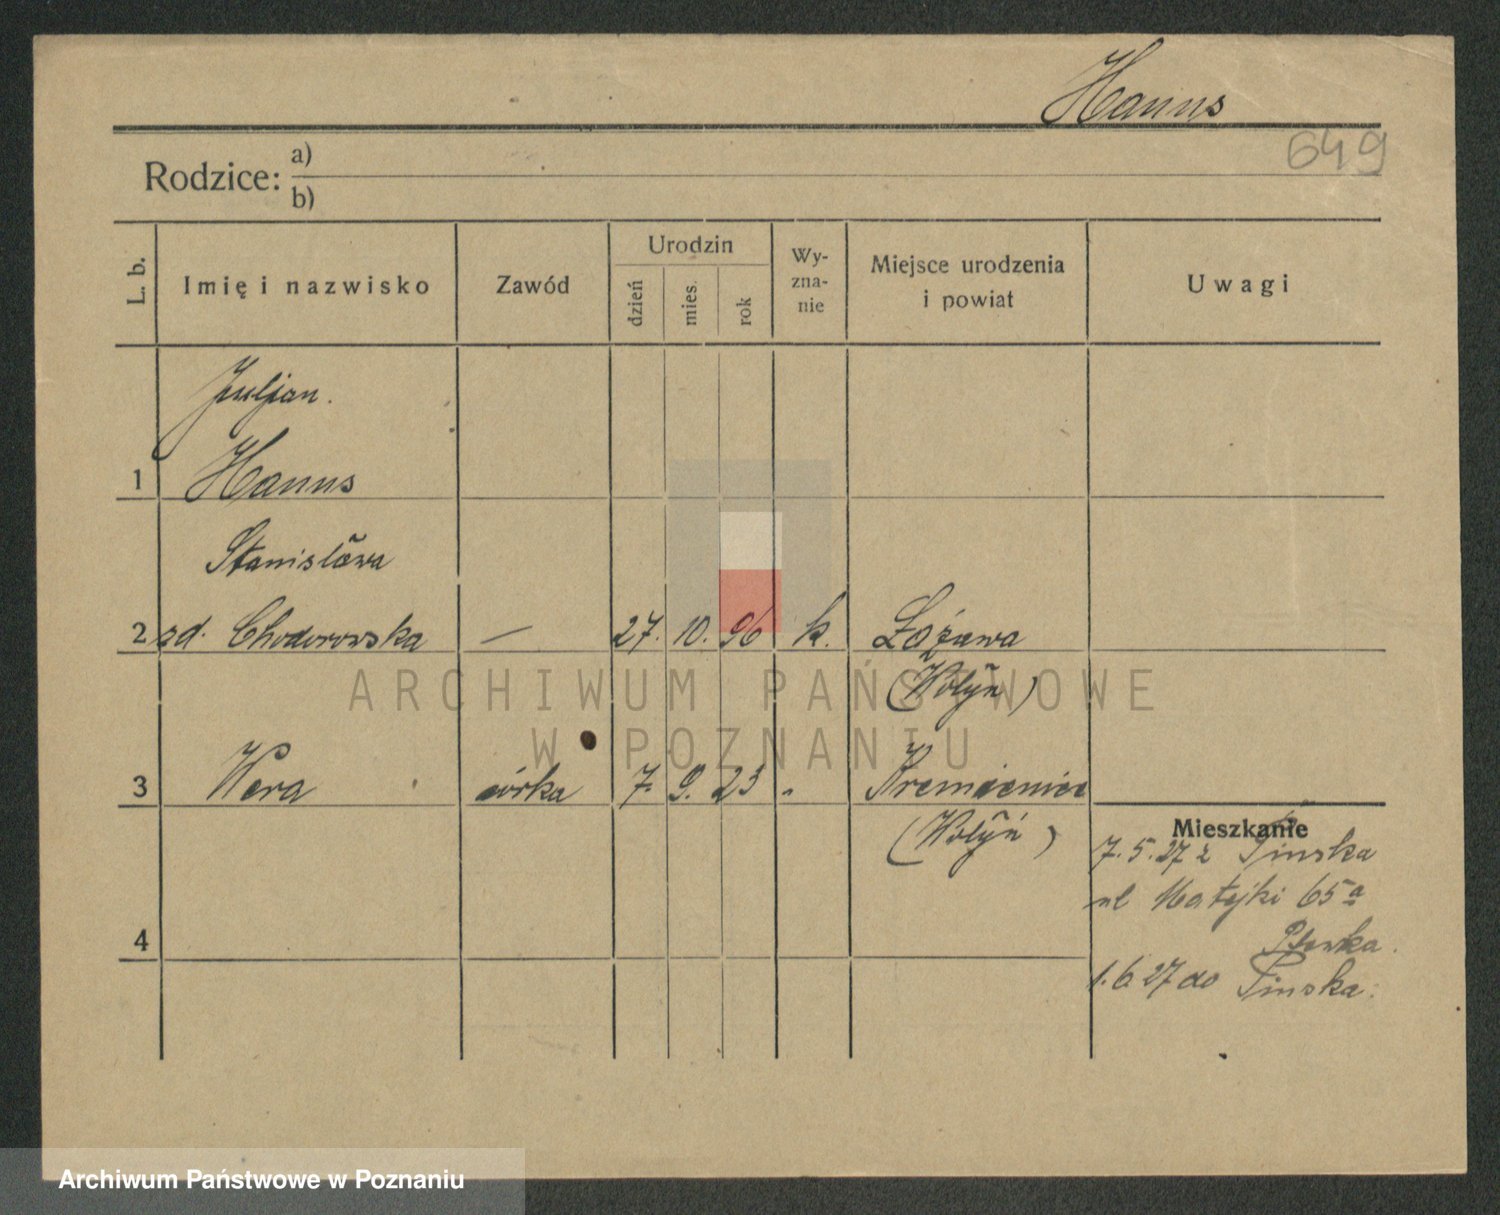 Hanus
649
Rodzice: a)
b)
L. b. Imię i nazwisko Zawód Urodzin dzień mies. rok Wy-zna-nie Miejsce urodzenia i powiat Uwagi
Juljan.
1 Hanus
Stanisława
2 zd. Chodorowska — 27. 10. 96 k. Łożawa
(Wołyń)
3 Wera córka 7. 9. 23 " Kremieniec
(Wołyń)
Mieszkanie
7. 5. 27 z Pińska
ul Matejki 65a
4
1. 6 27 do Pińska.
ARCHIWUM PAŃSTWOWE
W POZNANIU
Archiwum Państwowe w Poznaniu